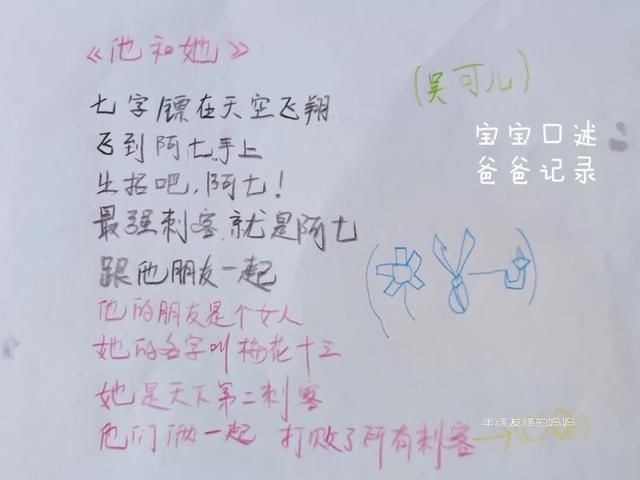 《他和她》
(吴可儿)
宝宝口述
爸爸记录
七字镖在天空飞翔
飞到阿七手上
出招吧,阿七!
最强刺客就是阿七
跟他朋友一起
他的朋友是个女人
她的名字叫梅花十三
她是天下第二刺客
他们俩一起 打败了所有刺客